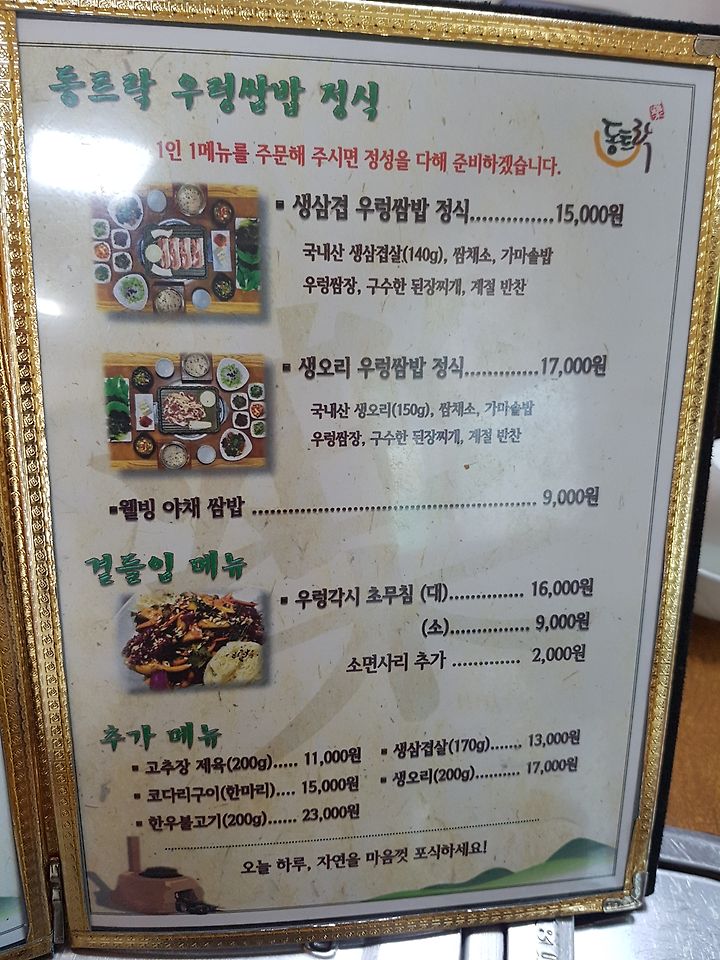 통트락 우렁쌈밥 정식
통트락
1인 1메뉴를 주문해 주시면 정성을 다해 준비하겠습니다.
■ 생삼겹 우렁쌈밥 정식..............15,000원
국내산 생삼겹살(140g), 쌈채소, 가마솥밥
우렁쌈장, 구수한 된장찌개, 계절 반찬
■ 생오리 우렁쌈밥 정식.............17,000원
국내산 생오리(150g), 쌈채소, 가마솥밥
우렁쌈장, 구수한 된장찌개, 계절 반찬
■웰빙 야채 쌈밥 ................................................ 9,000원
곁들임 메뉴
■ 우렁각시 초무침 (대)............. 16,000원
(소)............... 9,000원
소면사리 추가 ............. 2,000원
추가 메뉴
■ 고추장 제육(200g)..... 11,000원
■ 코다리구이(한마리).... 15,000원
■ 한우불고기(200g)...... 23,000원
■ 생삼겹살(170g)....... 13,000원
■ 생오리(200g).......... 17,000원
오늘 하루, 자연을 마음껏 포식하세요!